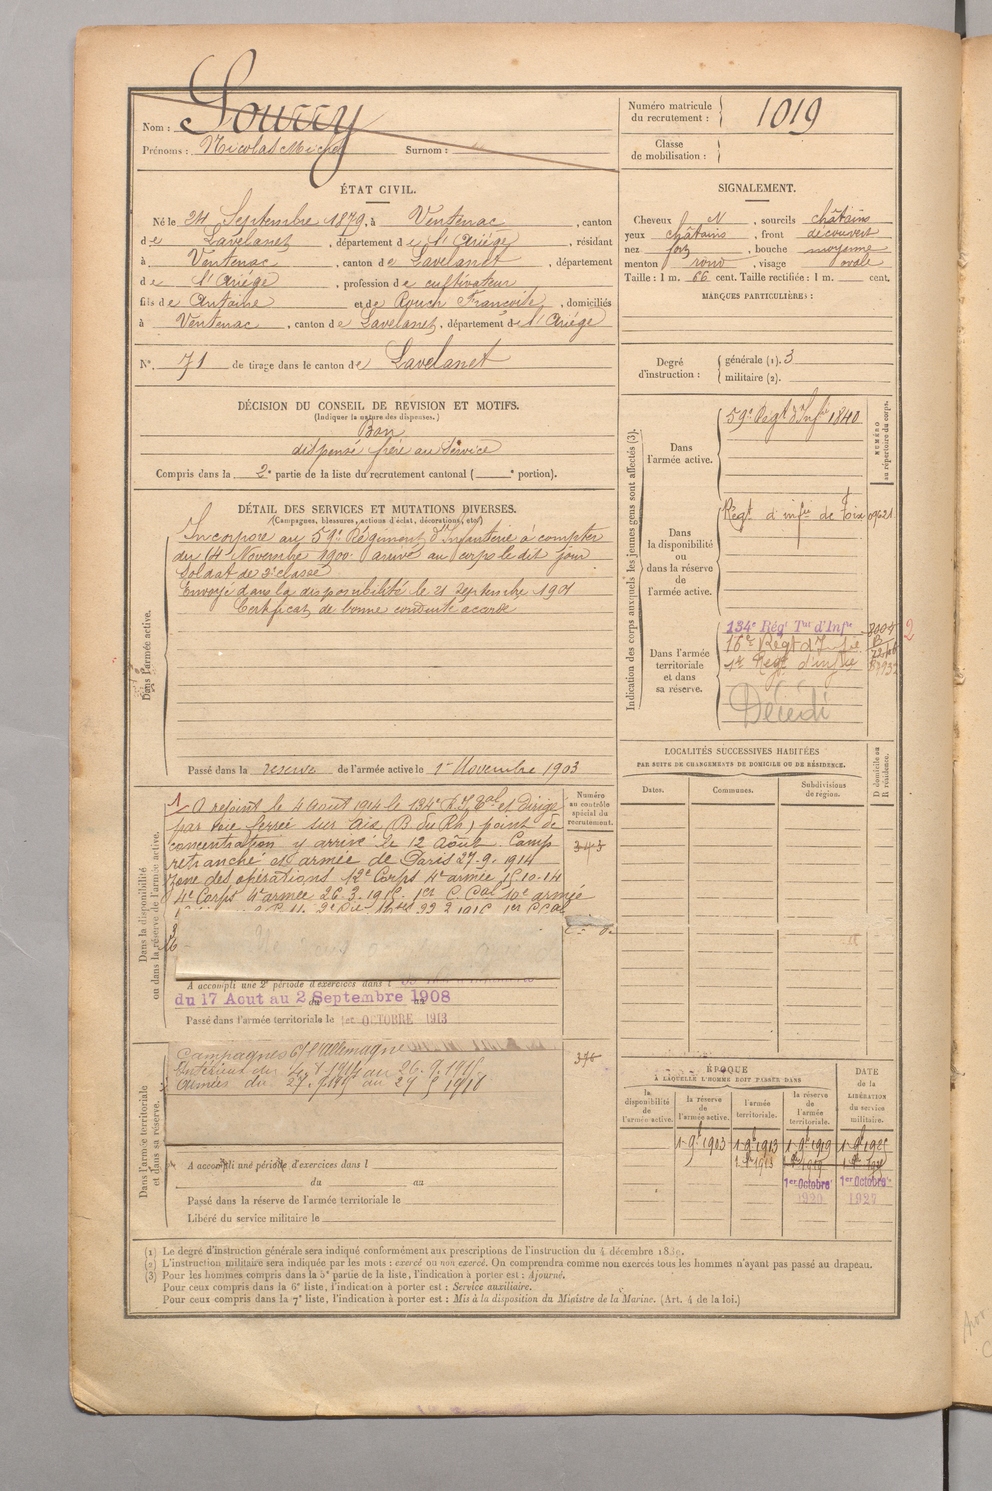 Nom : Sourry
Prénoms : Nicolas Michel Surnom :
Numéro matricule du recrutement : 1019
Classe de mobilisation :
ÉTAT CIVIL.
Né le 24 Septembre 1879, à Ventenac, canton
de Lavelanet, département de l'Ariège, résidant
à Ventenac, canton de Lavelanet, département
de l'Ariège, profession de cultivateur
fils de Antoine et de Rouch Françoise, domiciliés
à Ventenac, canton de Lavelanet, département de l'Ariège
N° 71 de tirage dans le canton de Lavelanet
SIGNALEMENT.
Cheveux N, sourcils châtains
yeux châtains, front découvert
nez fort, bouche moyenne
menton rond, visage ovale
Taille : 1 m. 66 cent. Taille rectifiée : 1 m. cent.
MARQUES PARTICULIÈRES :
Degré d'instruction : générale (1). 3
militaire (2).
DÉCISION DU CONSEIL DE REVISION ET MOTIFS.
(Indiquer la nature des dispenses.)
Bon
dispensé frère au Service
Compris dans la 2e partie de la liste du recrutement cantonal ( e portion).
DÉTAIL DES SERVICES ET MUTATIONS DIVERSES.
(Campagnes, blessures, actions d'éclat, décorations, etc.)
Dans l'armée active.
Incorporé au 59e Régiment d'Infanterie à compter
du 14 Novembre 1900 arrivé au corps le dit jour
Soldat de 2e classe
Envoyé dans la disponibilité le 21 Septembre 1901
Certificat de bonne conduite accordé
Passé dans la réserve de l'armée active le 1er Novembre 1903
Indication des corps auxquels les jeunes gens sont affectés (3).
NUMÉRO au répertoire du corps.
Dans l'armée active.
59e Régt d'Infie 1840
Dans la disponibilité ou dans la réserve de l'armée active.
Régt d'infie de Foix 09621
Dans l'armée territoriale et dans sa réserve.
134e Régt Tal d'Infie
Régt d'Infie
Régt d'infie
Décédé
2
LOCALITÉS SUCCESSIVES HABITÉES
PAR SUITE DE CHANGEMENTS DE DOMICILE OU DE RÉSIDENCE.
Dates. Communes. Subdivisions de région. D domicile ou R résidence.
Dans la disponibilité ou dans la réserve de l'armée active.
Numéro au contrôle spécial du recrutement.
345
A rejoint le 4 Août 1914 le 134e R.I. Tal et dirigé
par voie ferrée sur Aix (B. du Rh) point de
concentration y arrivé le 12 Août. Camp
retranché et armée de Paris 27-9-1914
Zone des opérations 12e Corps 4e armée 15-10-14
4e Corps 4e armée 26-3-1915. 1er C. Cal 10e armée
A accompli une 2e période d'exercices dans l
du 17 Aout au 2 Septembre 1908
Passé dans l'armée territoriale le 1er OCTOBRE 1913
Dans l'armée territoriale et dans sa réserve.
Campagnes c/ l'Allemagne
Intérieur du
Armées du
A accompli une période d'exercices dans l
du au
Passé dans la réserve de l'armée territoriale le
Libéré du service militaire le
ÉPOQUE
À LAQUELLE L'HOMME DOIT PASSER DANS
DATE de la LIBÉRATION du service militaire.
la disponibilité de l'armée active.
la réserve de l'armée active.
l'armée territoriale.
la réserve de l'armée territoriale.
1 9bre 1903 1 9bre 1913 1 9bre 1919 1 9bre 1925
1er Octobre 1er Octobre
1920 1927
(1) Le degré d'instruction générale sera indiqué conformément aux prescriptions de l'instruction du 4 décembre 1889.
(2) L'instruction militaire sera indiquée par les mots : exercé ou non exercé. On comprendra comme non exercés tous les hommes n'ayant pas passé au drapeau.
(3) Pour les hommes compris dans la 5e partie de la liste, l'indication à porter est : Ajourné.
Pour ceux compris dans la 6e liste, l'indication à porter est : Service auxiliaire.
Pour ceux compris dans la 7e liste, l'indication à porter est : Mis à la disposition du Ministre de la Marine. (Art. 4 de la loi.)